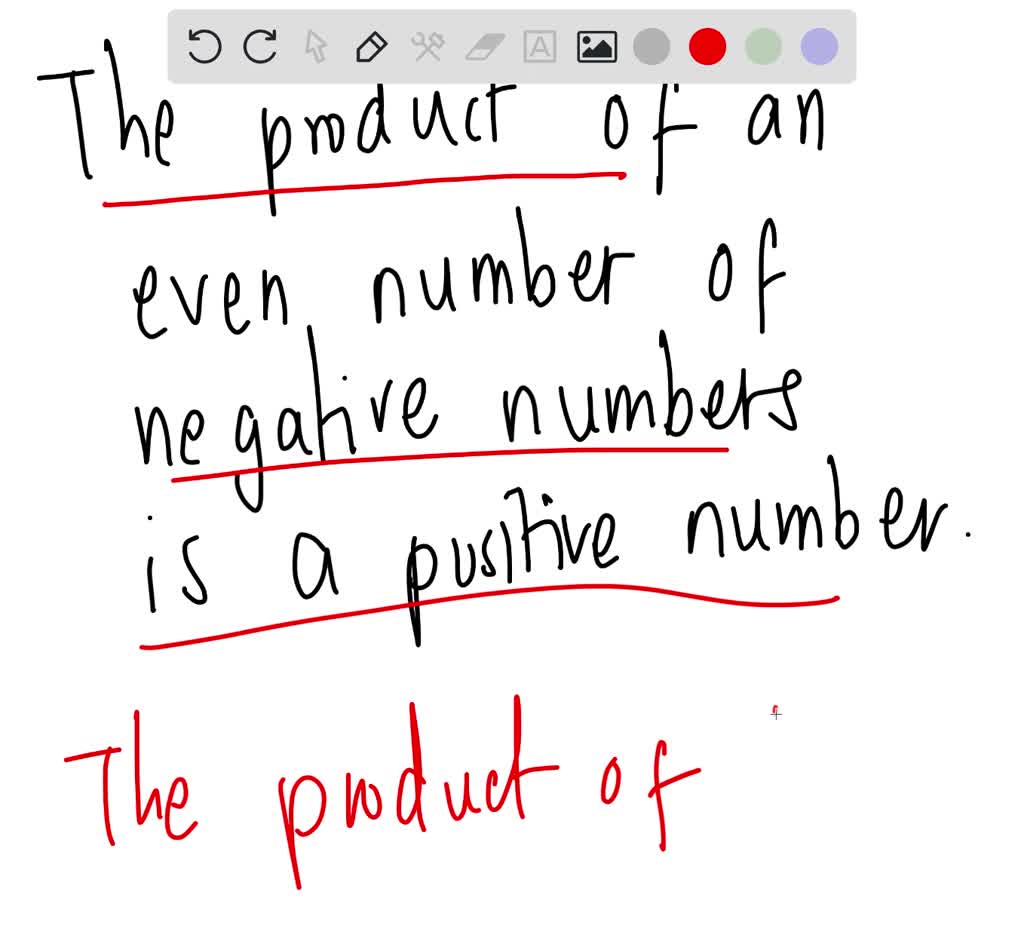 The product of an
even number of
negative numbers
is a positive number.
The product of